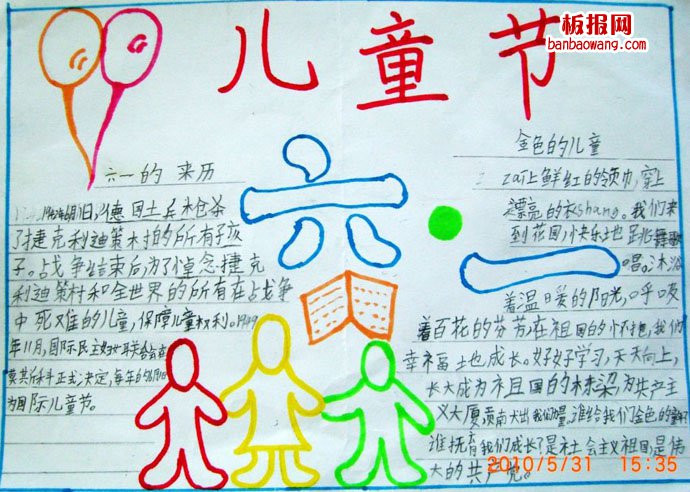 板报网
banbaowang.com
儿童节
六·一
六一的来历
德国士兵枪杀
了捷克利迪策村的所有孩
子。战争结束后,为了悼念捷克
利迪策村和全世界的所有在战争
中死难的儿童,保障儿童权利。1949
年11月,国际民主妇女联合会在
莫斯科正式决定,每年6月1日
为国际儿童节。
金色的儿童
zai上鲜红的领巾,穿上
漂亮的衣shang。我们来
到花园,快乐地跳舞歌
唱。沐浴
着温暖的阳光,呼吸
着百花的芬芳,在祖国的怀抱,我们
幸福地成长。好好学习,天天向上,
长大成为祖国的栋梁为共产主
义大厦贡献出我们的力量。谁给我们金色的童年?
谁抚育我们成长?是社会主义祖国,是伟
大的共产党。
2010/5/31 15:35